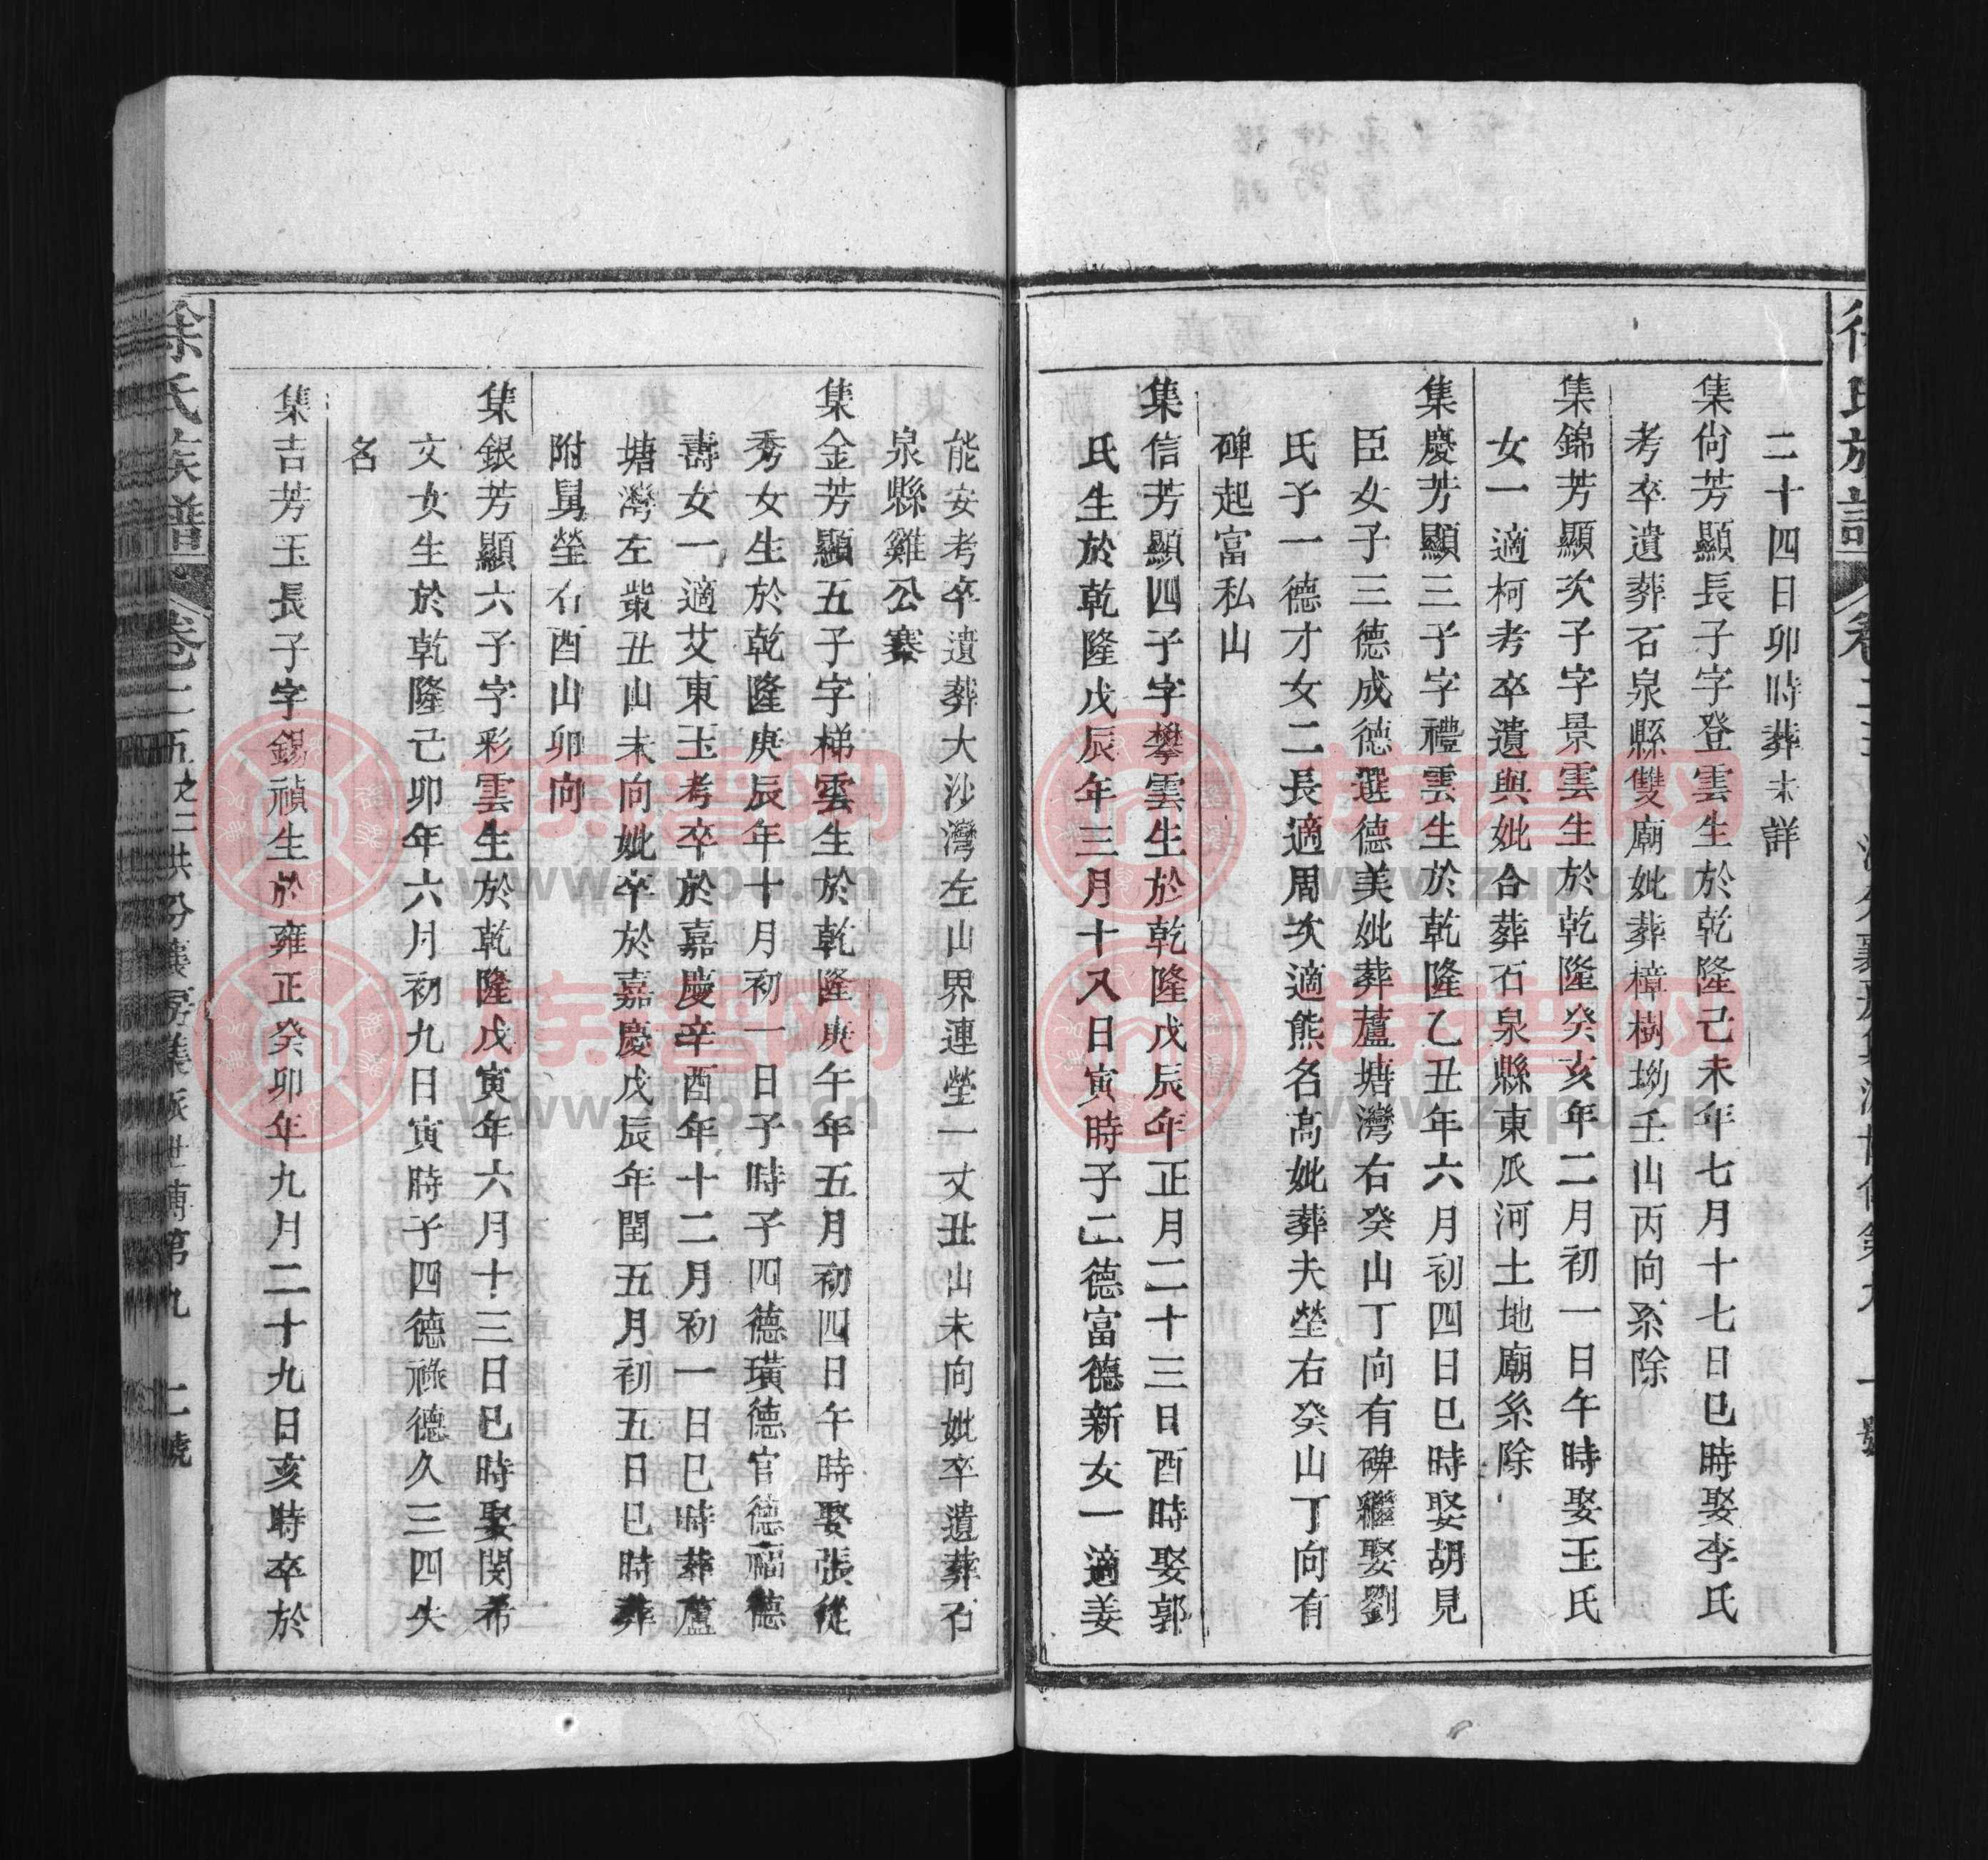 二十四日卯時葬未詳
集尙芳顯長子字登雲生於乾隆己未年七月十七日巳時娶李氏
考卒遺葬石泉縣雙廟妣葬樟樹坳壬山丙向系除
集錦芳顯次子字景雲生於乾隆癸亥年二月初一日午時娶王氏
女一適柯考卒遺與妣合葬石泉縣東瓜河土地廟系除
集慶芳顯三子字禮雲生於乾隆乙丑年六月初四日巳時娶胡見
臣女子三德成德選德美妣葬蘆塘灣右癸山丁向有碑繼娶劉
氏子一德才女二長適周次適熊名高妣葬夫塋右癸山丁向有
碑起富私山
集信芳顯四子字攀雲生於乾隆戊辰年正月二十三日酉時娶郭
氏生於乾隆戊辰年三月十又日寅時子二德富德新女一適姜
能安考卒遺葬大沙灣左山界連塋一丈丑山未向妣卒遺葬石
泉縣雞公寨
集金芳顯五子字梯雲生於乾隆庚午年五月初四日午時娶張從
秀女生於乾隆庚辰年十月初一日子時子四德璜德官德福德
壽女一適艾東玉考卒於嘉慶辛酉年十二月初一日巳時葬蘆
塘灣左蚩丑山未向妣卒於嘉慶戊辰年閏五月初五日巳時葬
附舅塋右酉山卯向
集銀芳顯六子字彩雲生於乾隆戊寅年六月十三日巳時娶閔希
文女生於乾隆己卯年六月初九日寅時子四德祿德久三四失
名
集吉芳玉長子字錫禎生於雍正癸卯年九月二十九日亥時卒於
徐氏族譜 卷二五之二洪分襄房集派世傳第九 二號
族谱网
www.zupu.cn
族谱网
www.zupu.cn
族谱网
www.zupu.cn
族谱网
www.zupu.cn